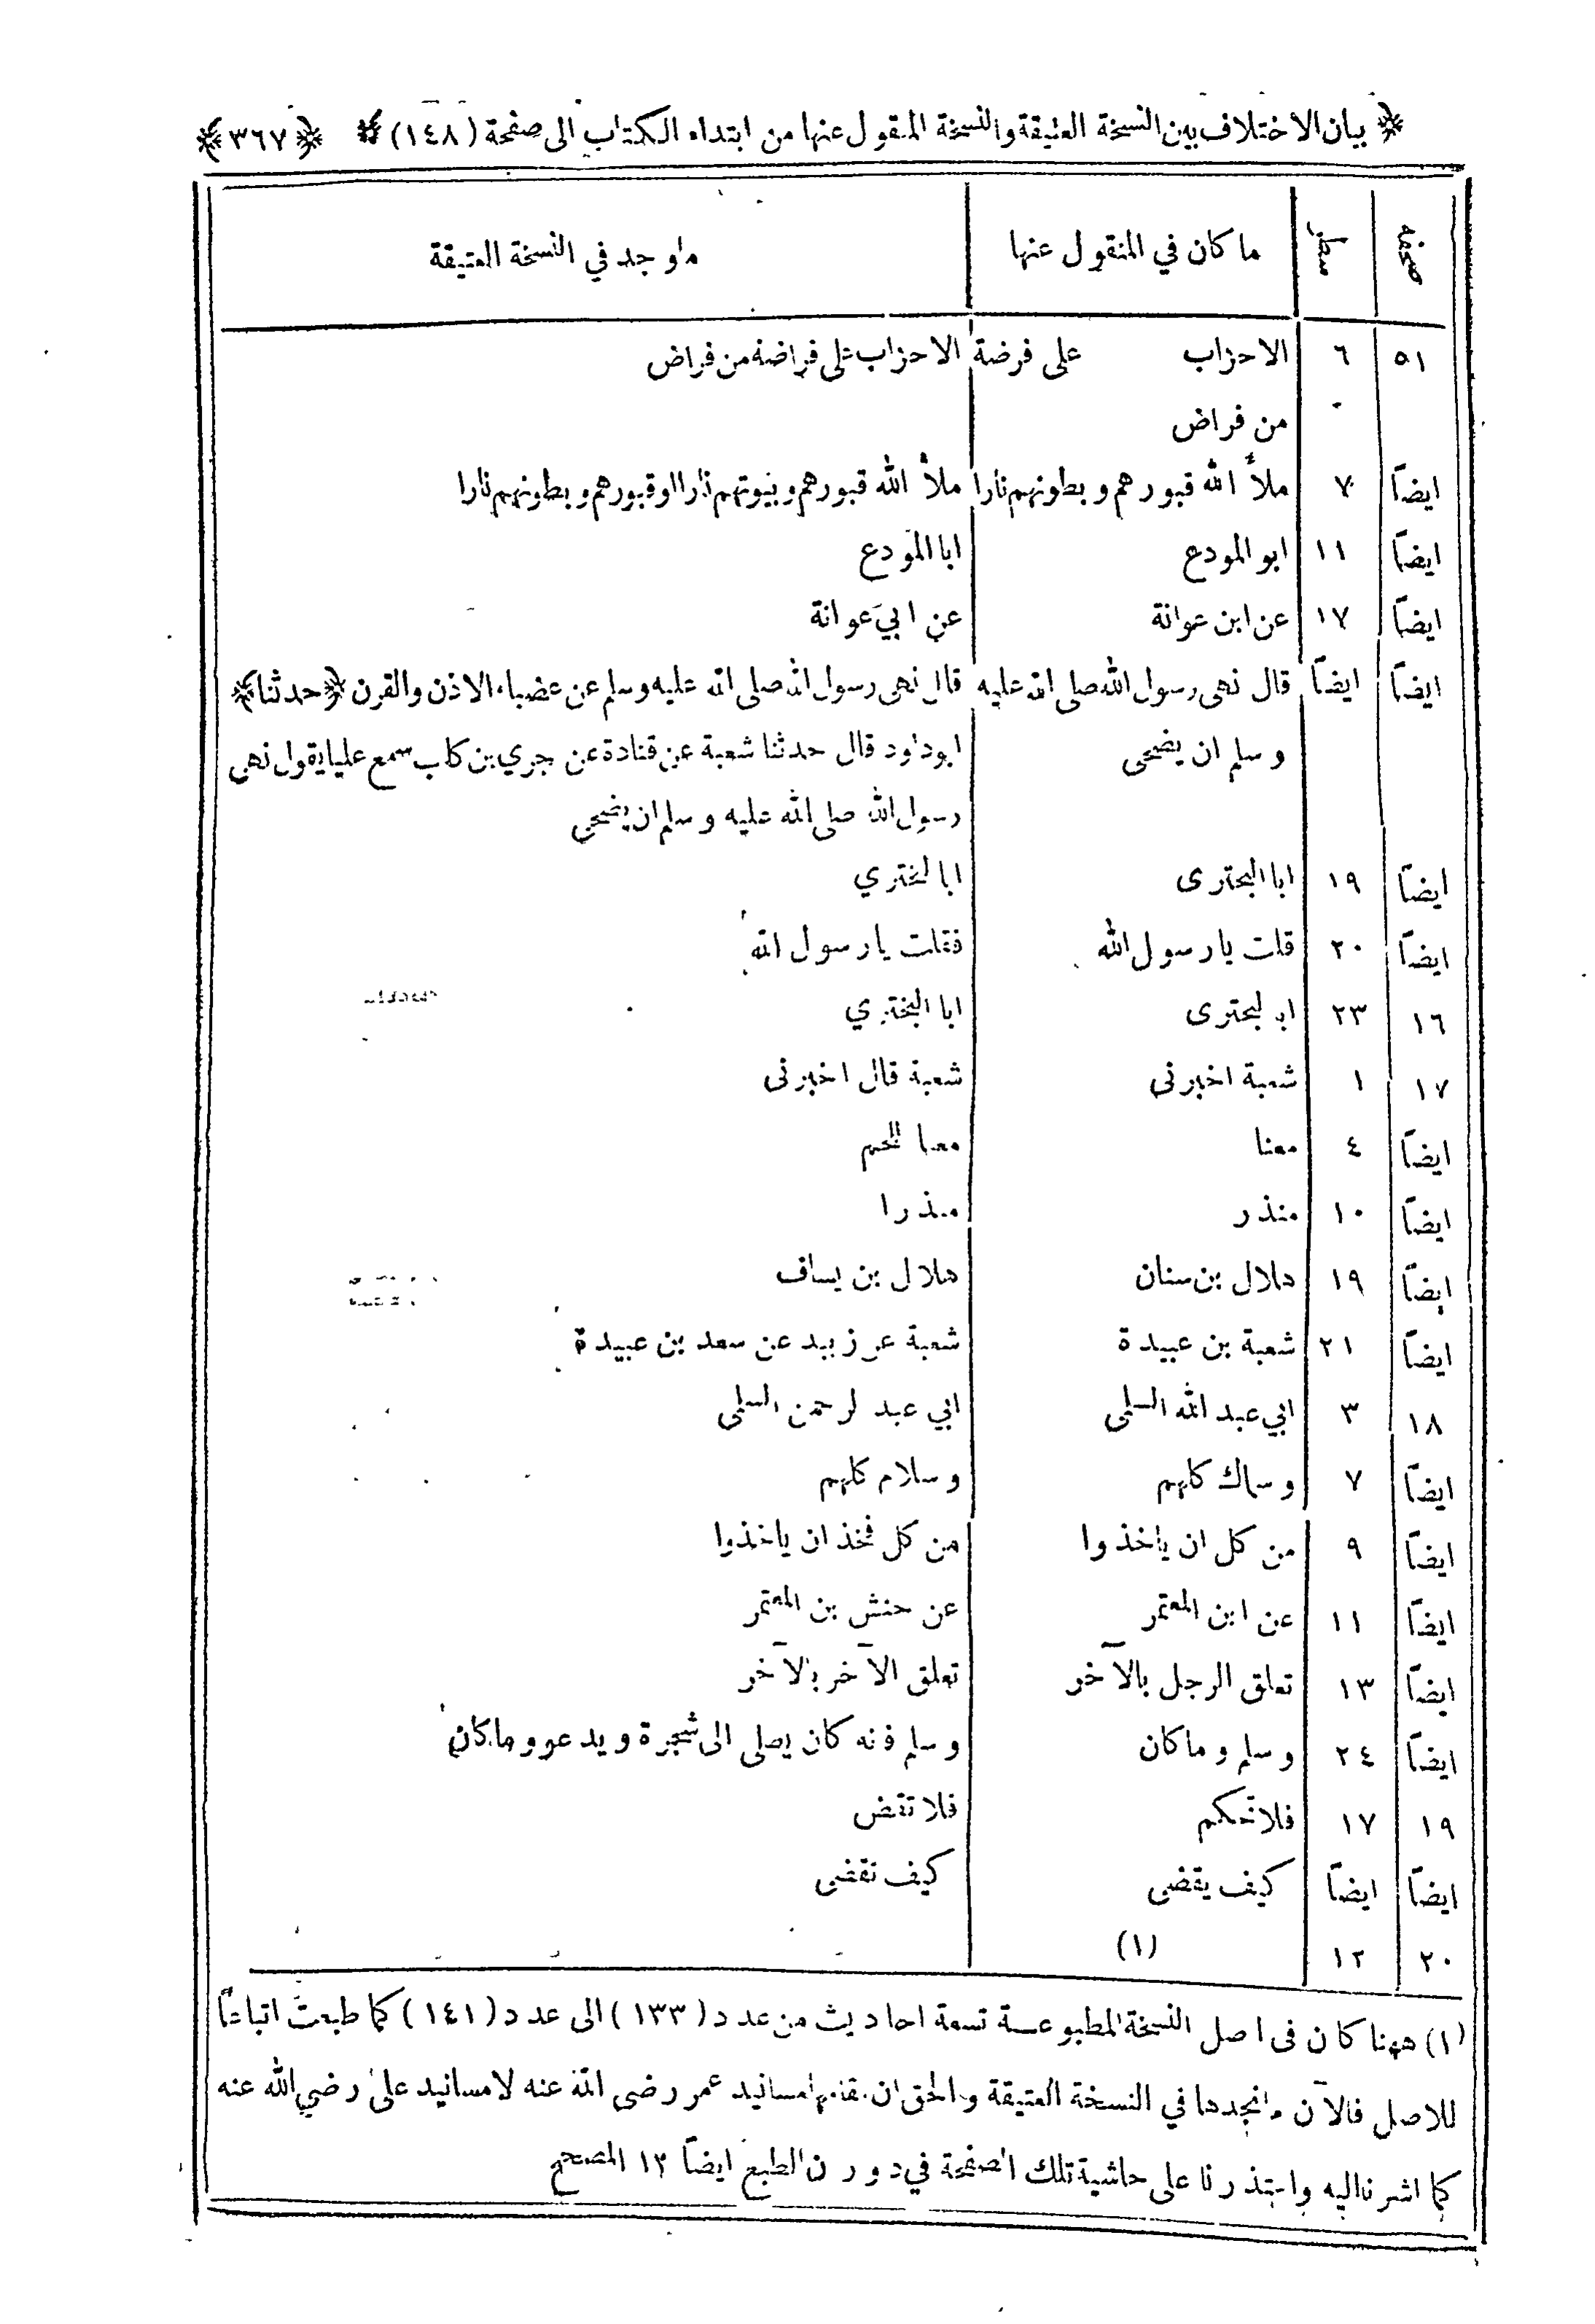 ﴿ بيان الاختلاف بين النسخة العتيقة والنسخة المنقول عنها من ابتداء الكتاب الى صفحة (١٤٨) ﴾ ﴿ ٣٦٧ ﴾
صحفه سطر ما كان في المنقول عنها ما وجد في النسخة العتيقة
٥١ ٦ الاحزاب على فرضة الاحزاب على فراضة من فراض
من فراض
ايضاً ٧ ملأ الله قبورهم وبطونهم نارا ملأ الله قبورهم وبيوتهم نارا او قبورهم وبطونهم نارا
ايضاً ١١ ابو المودع ابا المودع
ايضاً ١٧ عن ابن عوانة عن ابي عوانة
ايضاً ايضاً قال نهى رسول الله صلى الله عليه قال نهى رسول الله صلى الله عليه وسلم عن عضباء الاذن والقرن ﴿حدثنا﴾
وسلم ان يضحى ابوداود قال حدثنا شعبة عن قتادة عن جري بن كاب سمع عليا يقول نهى
رسول الله صلى الله عليه وسلم ان يضحى
ايضاً ١٩ ابا البحترى ابا لختري
ايضاً ٢٠ قلت يا رسول الله فقلت يا رسول الله
١٦ ٢٣ ابا لبحترى ابا البختري
١٧ ١ شعبة اخبرنى شعبة قال اخبرنى
ايضاً ٤ معنا معنا لحم
ايضاً ١٠ منذر منذرا
ايضاً ١٩ هلال بن سنان هلال بن يساف
ايضاً ٢١ شعبة بن عبيدة شعبة عن زبيد عن سعد بن عبيدة
١٨ ٣ ابي عبد الله السلمى ابي عبد الرحمن السلمى
ايضاً ٧ وسماك كلهم وسلام كلهم
ايضاً ٩ من كل ان ياخذوا من كل فخذ ان ياخذوا
ايضاً ١١ عن ابن المعتمر عن حنش بن المعتمر
ايضاً ١٣ تعلق الرجل بالآخر تعلق الآخر بالآخر
ايضاً ٢٤ وسلم وما كان وسلم فانه كان يصلى الى شجرة ويدعو وما كان
١٩ ١٧ فلا تحكم فلا تقض
ايضاً ايضاً كيف يقضى كيف تقضى
٢٠ ١٢ (١)
(١) ههنا كان فى اصل النسخة المطبوعة تسعة احاديث من عدد (١٣٣) الى عدد (١٤١) كما طبعت اتباعًا
للاصل فالآن ما نجدها في النسخة العتيقة والحق ان مقامها مسانيد عمر رضى الله عنه لا مسانيد على رضي الله عنه
كما اشرنا اليه واعتذرنا على حاشية تلك الصفحة في دوران الطبع ايضاً ١٢ المصحح